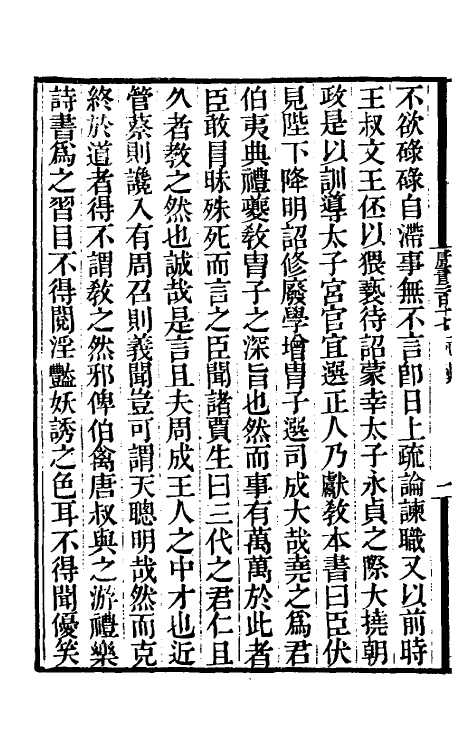 不欲碌碌自滯事無不言卽日上疏論諫職又以前時
王叔文王伾以猥褻待詔蒙幸太子永貞之際大撓朝
政是以訓導太子宮官宜選正人乃獻敎本書曰臣伏
見陛下降明詔修廢學增冑子選司成大哉堯之爲君
伯夷典禮夔敎冑子之深旨也然而事有萬萬於此者
臣敢冒昧殊死而言之臣聞諸賈生曰三代之君仁且
久者敎之然也誠哉是言且夫周成王人之中才也近
管蔡則讒入有周召則義聞豈可謂天聰明哉然而克
終於道者得不謂敎之然邪俾伯禽唐叔與之游禮樂
詩書爲之習目不得閱淫艷妖誘之色耳不得聞優笑